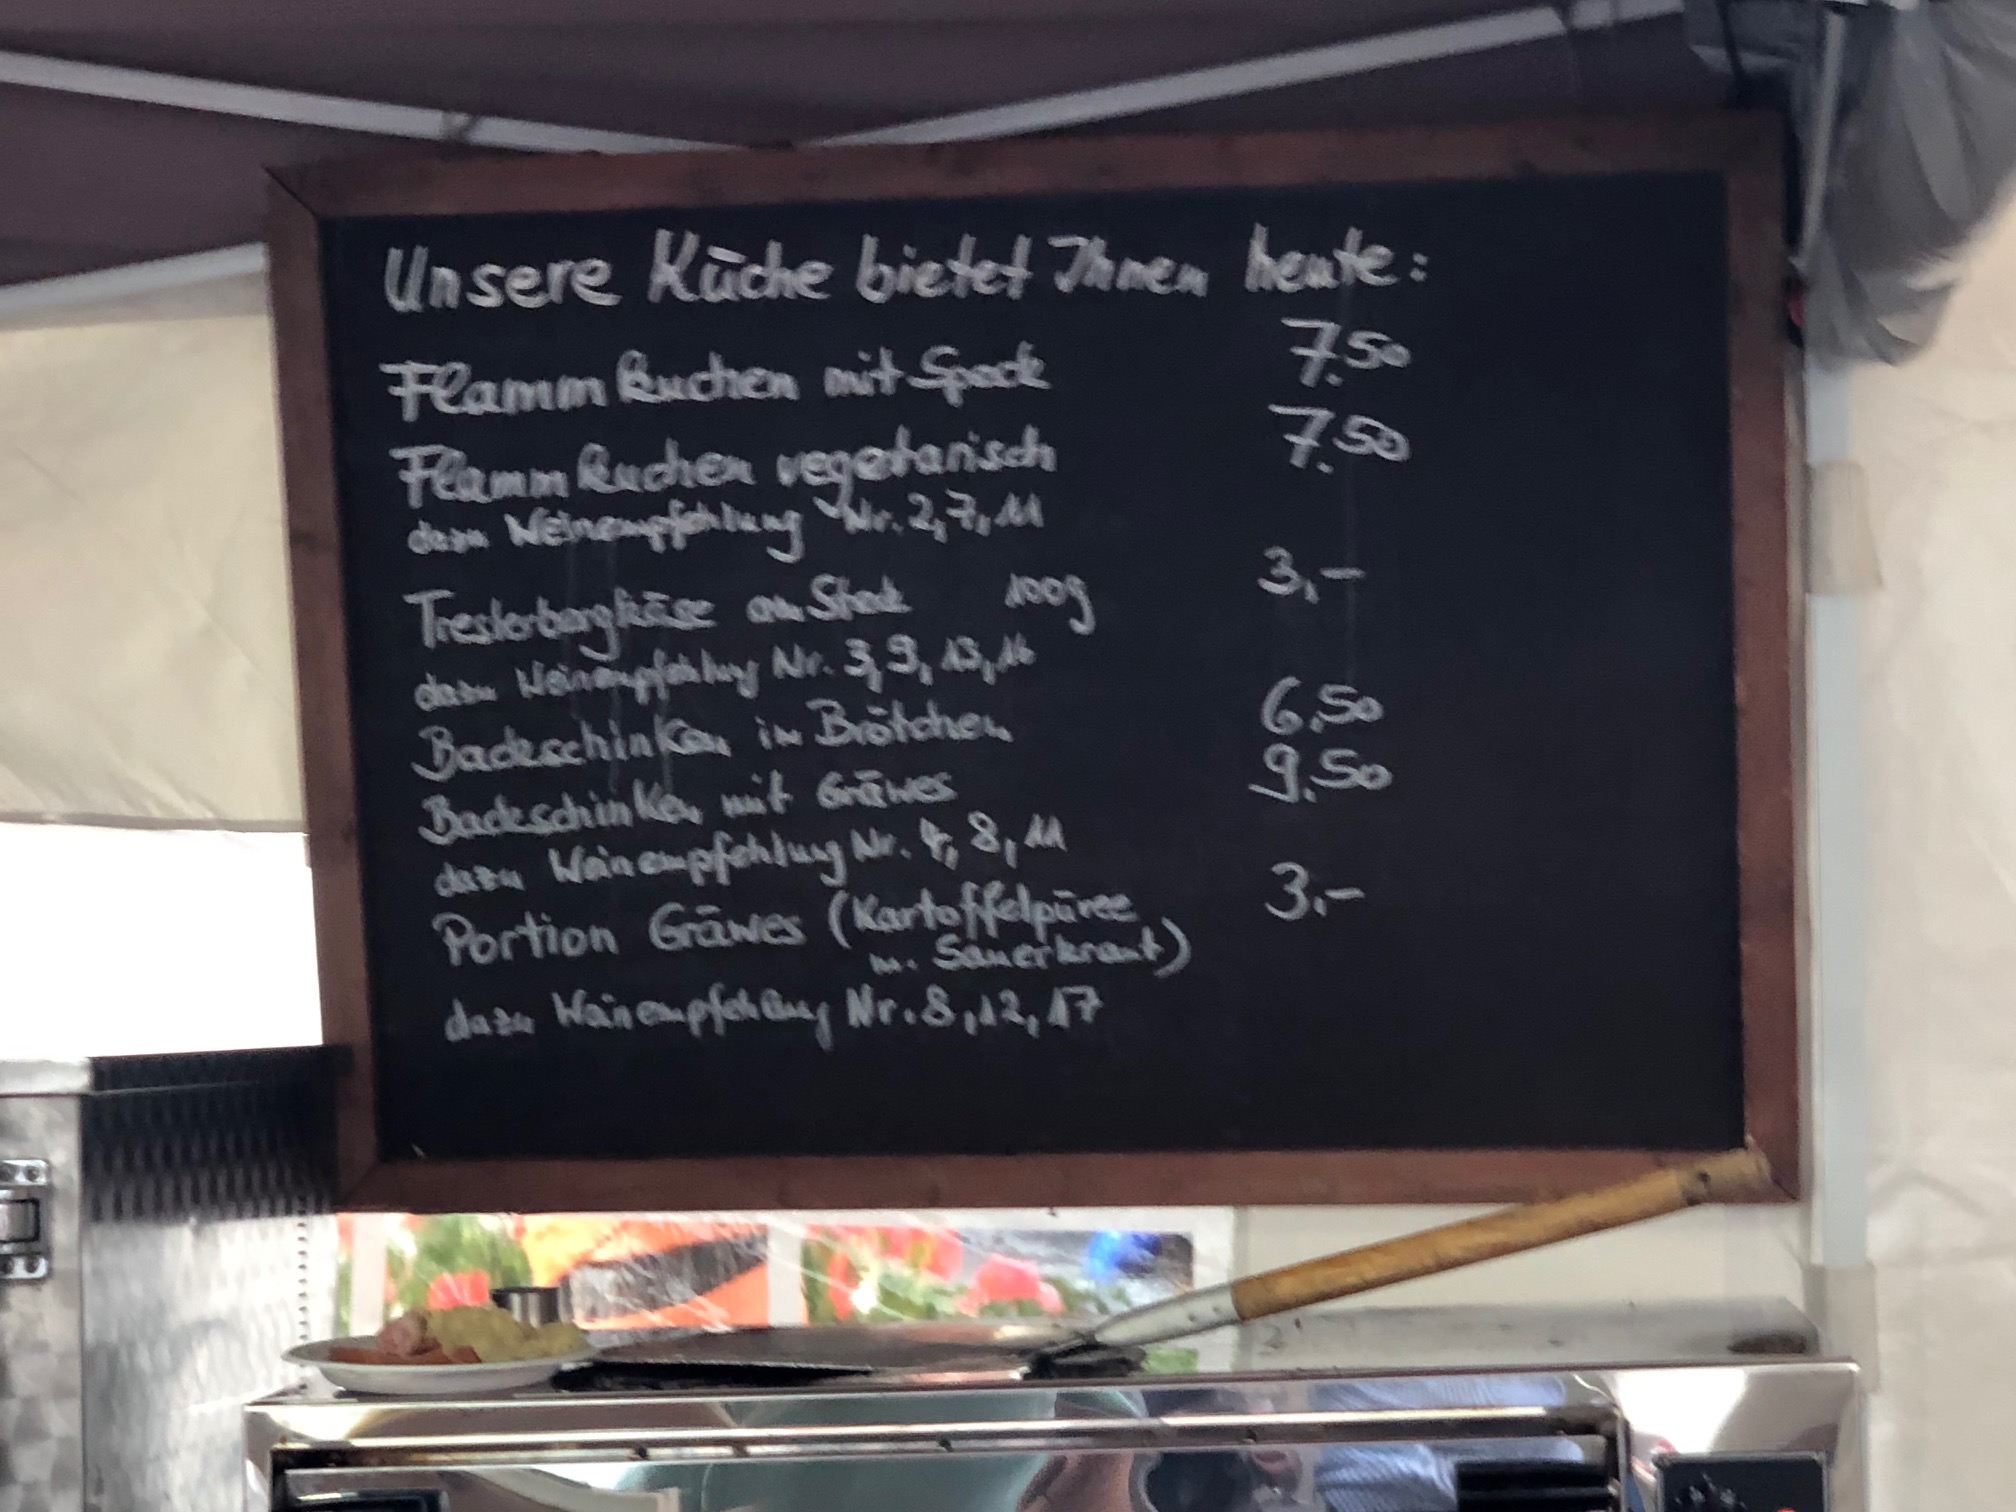 Unsere Küche bietet Ihnen heute:
Flammkuchen mit Speck 7.50
Flammkuchen vegetarisch 7.50
dazu Weinempfehlung Nr. 2, 7, 11
Tresterbergkäse am Stück 100g 3,-
dazu Weinempfehlung Nr. 3, 9, 13, 16
Backschinken im Brötchen 6,50
Backschinken mit Gräwes 9.50
dazu Weinempfehlung Nr. 4, 8, 11
Portion Gräwes (Kartoffelpüree 3,-
m. Sauerkraut)
dazu Weinempfehlung Nr. 8, 12, 17